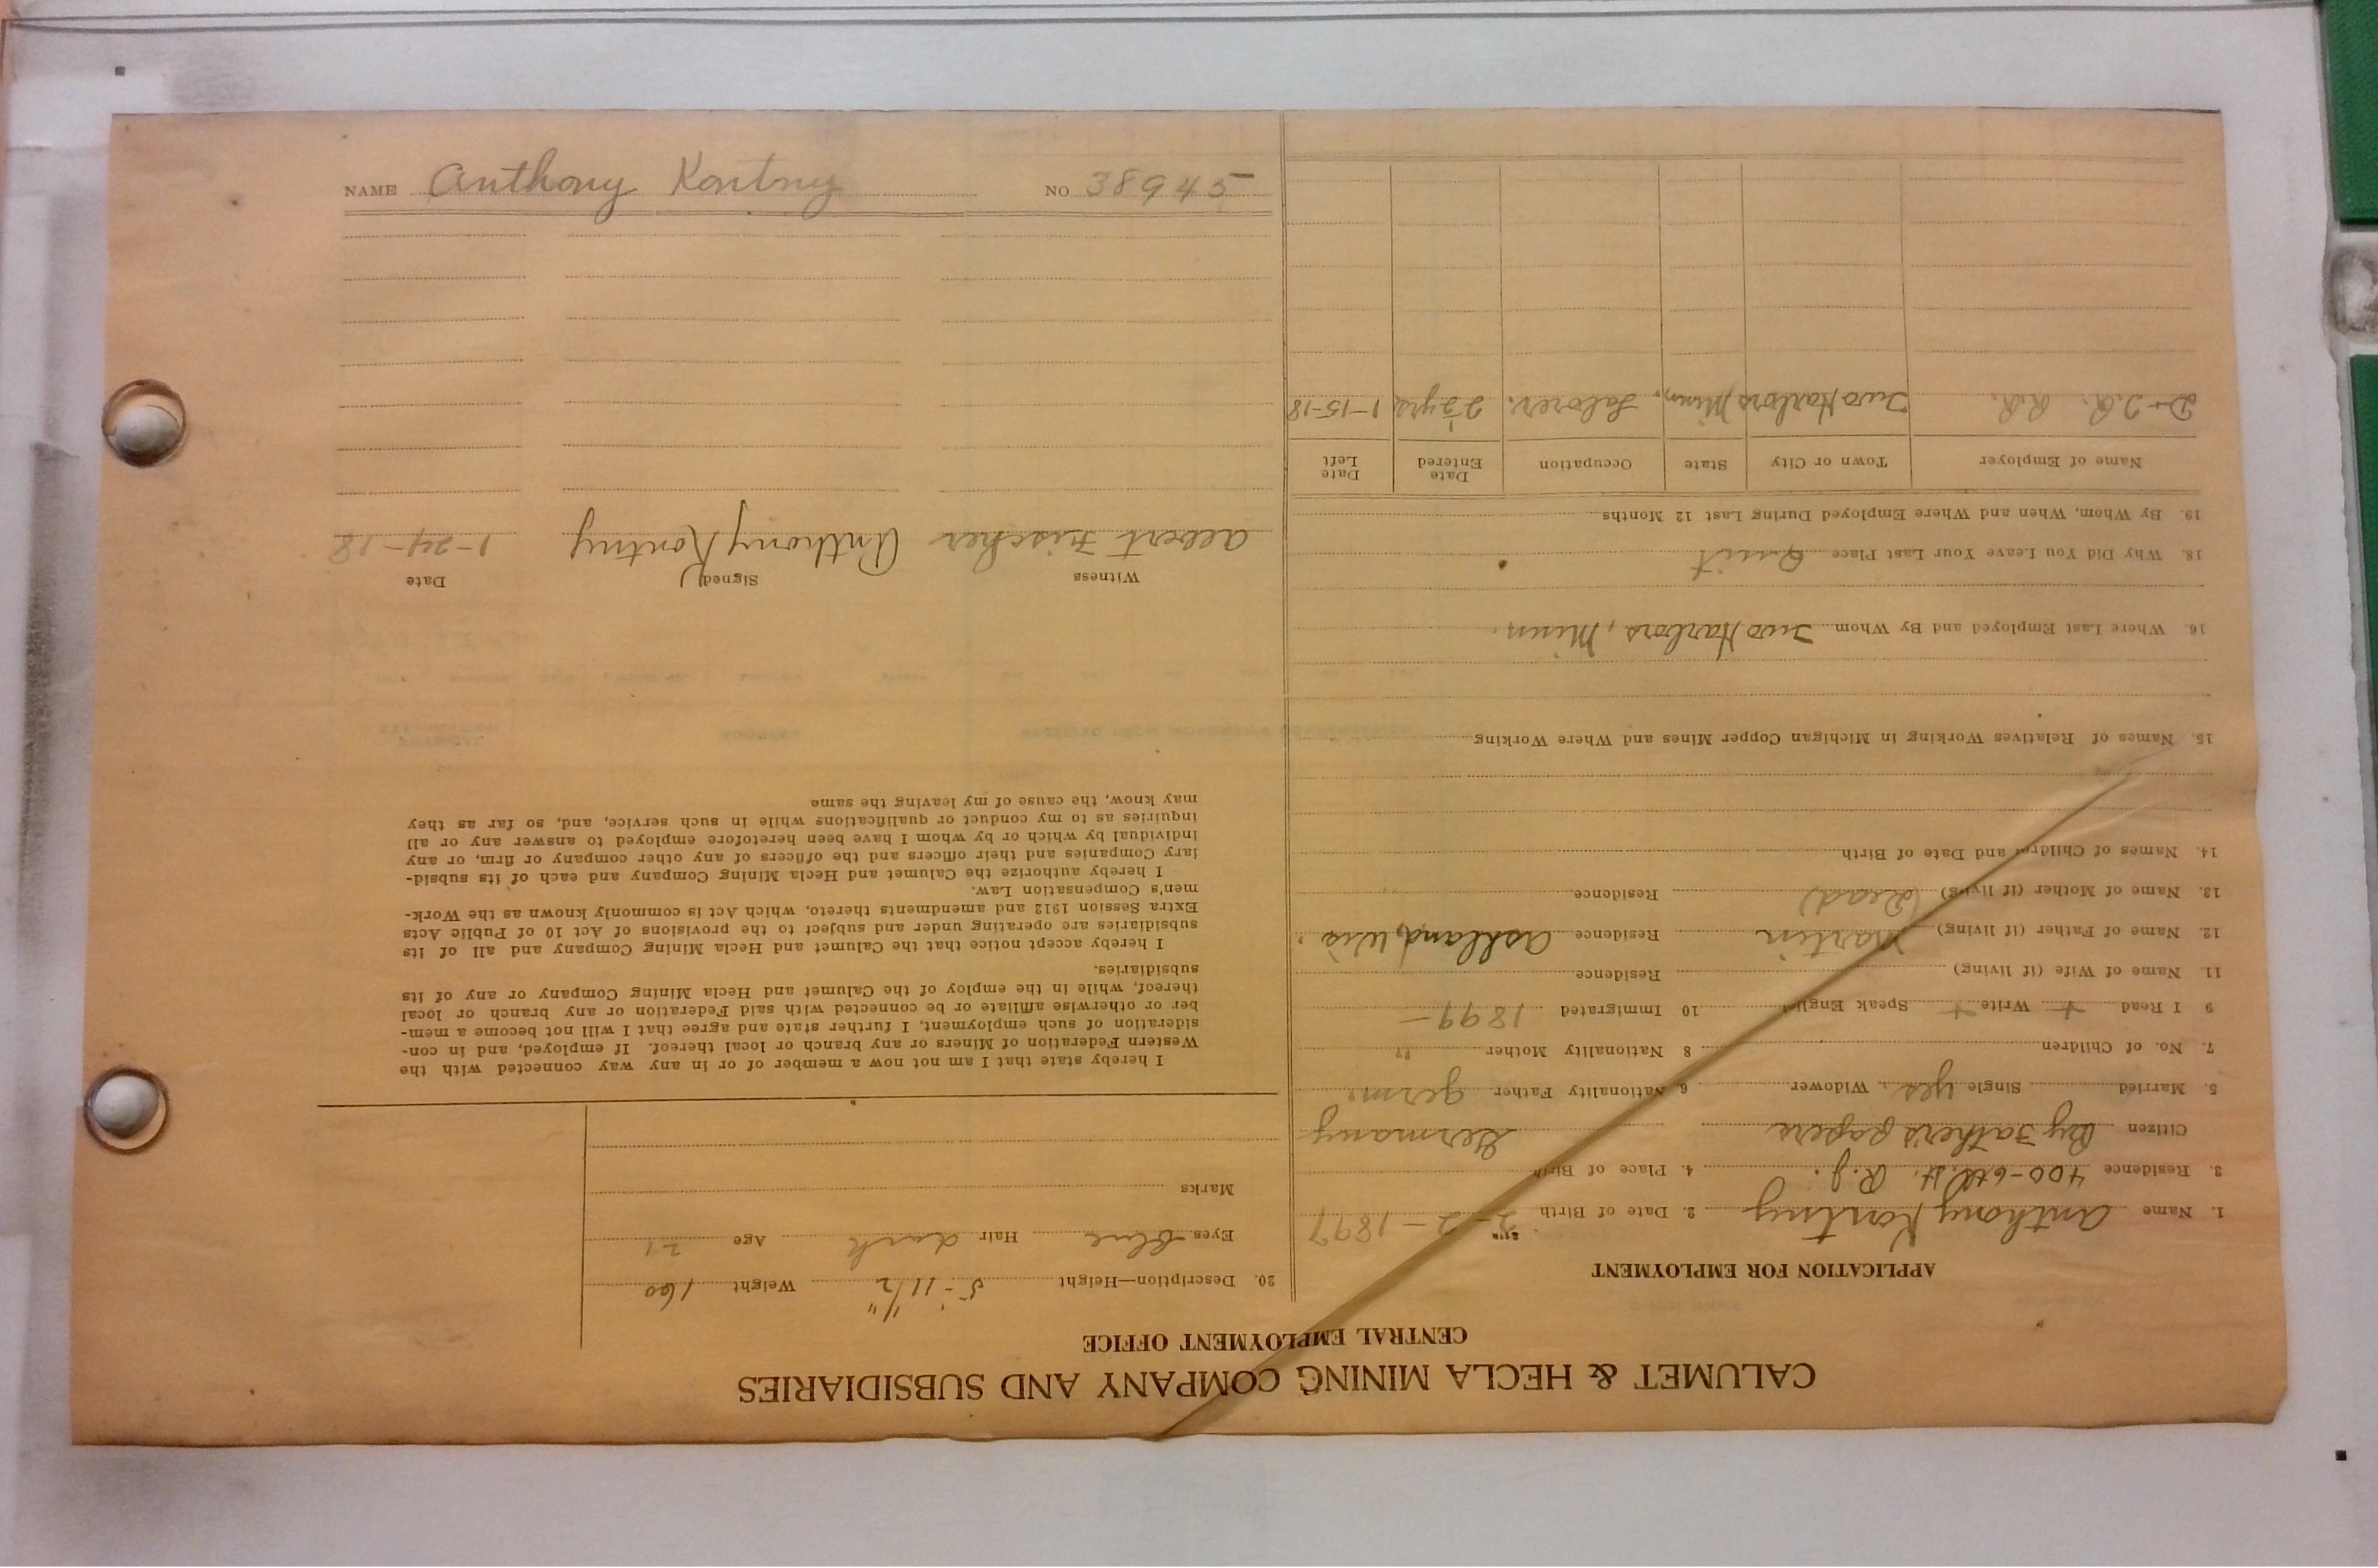 CALUMET & HECLA MINING COMPANY AND SUBSIDIARIES
CENTRAL EMPLOYMENT OFFICE
APPLICATION FOR EMPLOYMENT
1. Name Anthony Kontny 2. Date of Birth 2-2-1897
3. Residence 400-6th. St. R.J. 4. Place of Birth
Citizen By Father's papers Germany
5. Married Single yes. Widower 6. Nationality Father Germ.
7. No. of Children 8 Nationality Mother "
9 I Read + Write + Speak English 10 Immigrated 1899-
11. Name of Wife (if living) Residence
12. Name of Father (if living) Martin Residence Ashland, Wis.
13. Name of Mother (if living) (Dead) Residence "
14. Names of Children and Date of Birth
15. Names of Relatives Working in Michigan Copper Mines and Where Working
16. Where Last Employed and By Whom Two Harbors, Minn.
18. Why Did You Leave Your Last Place Quit
19. By Whom, When and Where Employed During Last 12 Months
Name of Employer Town or City State Occupation Date Entered Date Left
D+I.R. R.R. Two Harbors Minn. Laborer. 2 1/2 yrs 1-15-18
20. Description—Height 5'-11 1/2" Weight 160
Eyes Blue Hair dark Age 21
Marks
I hereby state that I am not now a member of or in any way connected with the
Western Federation of Miners or any branch or local thereof. If employed, and in con-
sideration of such employment, I further state and agree that I will not become a mem-
ber or otherwise affiliate or be connected with said Federation or any branch or local
thereof, while in the employ of the Calumet and Hecla Mining Company or any of its
subsidiaries.
I hereby accept notice that the Calumet and Hecla Mining Company and all of its
subsidiaries are operating under and subject to the provisions of Act 10 of Public Acts
Extra Session 1912 and amendments thereto, which Act is commonly known as the Work-
men's Compensation Law.
I hereby authorize the Calumet and Hecla Mining Company and each of its subsid-
iary Companies and their officers and the officers of any other company or firm, or any
individual by which or by whom I have been heretofore employed to answer any or all
inquiries as to my conduct or qualifications while in such service, and, so far as they
may know, the cause of my leaving the same
Witness Signed Date
Albert Fischer Anthony Kontny 1-24-18
NAME Anthony Kontny NO 38945